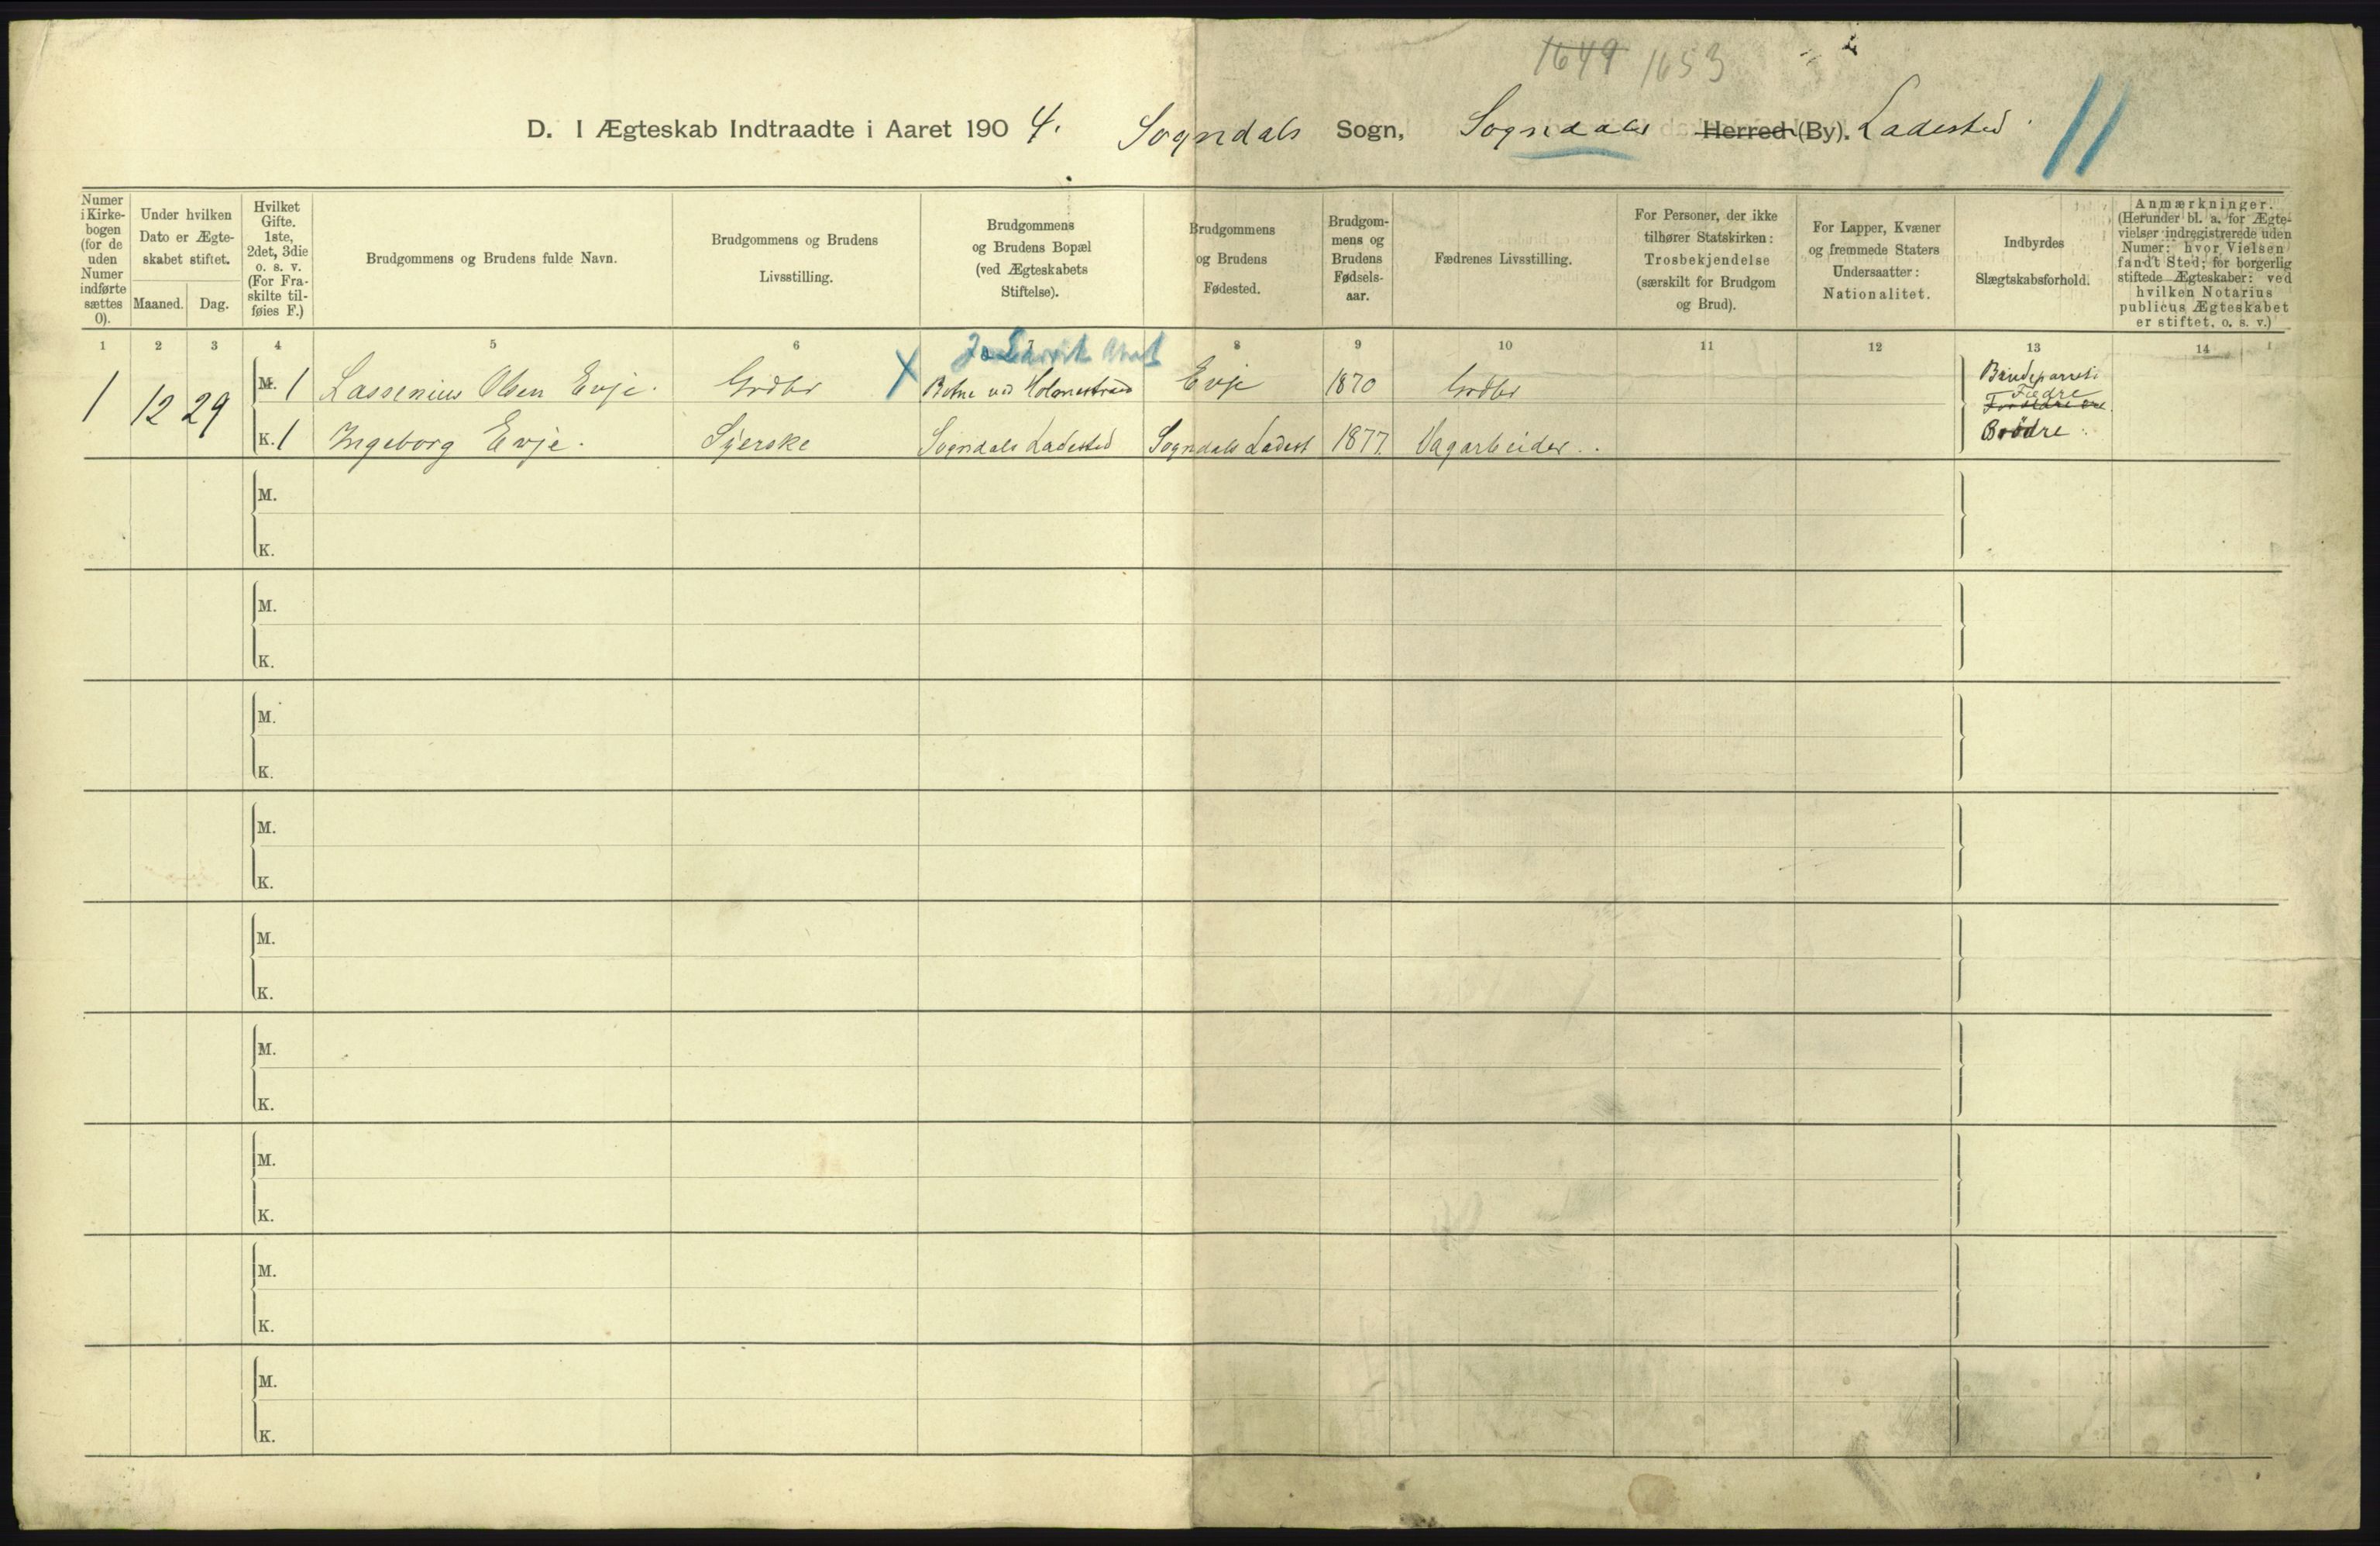 1649 1653
D. I Ægteskab Indtraadte i Aaret 1904. Sogndals Sogn, Sogndals Herred (By). Ladested 11
Numer i Kirkebogen (for de uden Numer indførte sættes 0).
Under hvilken Dato er Ægteskabet stiftet.
Maaned. Dag.
Hvilket Gifte. 1ste, 2det, 3die o. s. v. (For Fraskilte tilføies F.)
Brudgommens og Brudens fulde Navn.
Brudgommens og Brudens Livsstilling.
Brudgommens og Brudens Bopæl (ved Ægteskabets Stiftelse).
Brudgommens og Brudens Fødested.
Brudgommens og Brudens Fødselsaar.
Fædrenes Livsstilling.
For Personer, der ikke tilhører Statskirken: Trosbekjendelse (særskilt for Brudgom og Brud).
For Lapper, Kvæner og fremmede Staters Undersaatter: Nationalitet.
Indbyrdes Slægtskabsforhold.
Anmærkninger. (Herunder bl. a. for Ægtevielser indregistrerede uden Numer: hvor Vielsen fandt Sted; for borgerlig stiftede Ægteskaber: ved hvilken Notarius publicus Ægteskabet er stiftet, o. s. v.)
1 2 3 4 5 6 7 8 9 10 11 12 13 14
1 12 29 M. 1 Lassenius Olsen Evje. Grdbr X Botne ved Holmestrand Evje 1870 Grdbr
K. 1 Ingeborg Evje. Syerske Sogndals Ladested Sogndals Ladest 1877. Vagarbeider.
Brudeparrets
Fædre
Forældre ere
Brödre
M.
K.
M.
K.
M.
K.
M.
K.
M.
K.
M.
K.
M.
K.
M.
K.
M.
K.